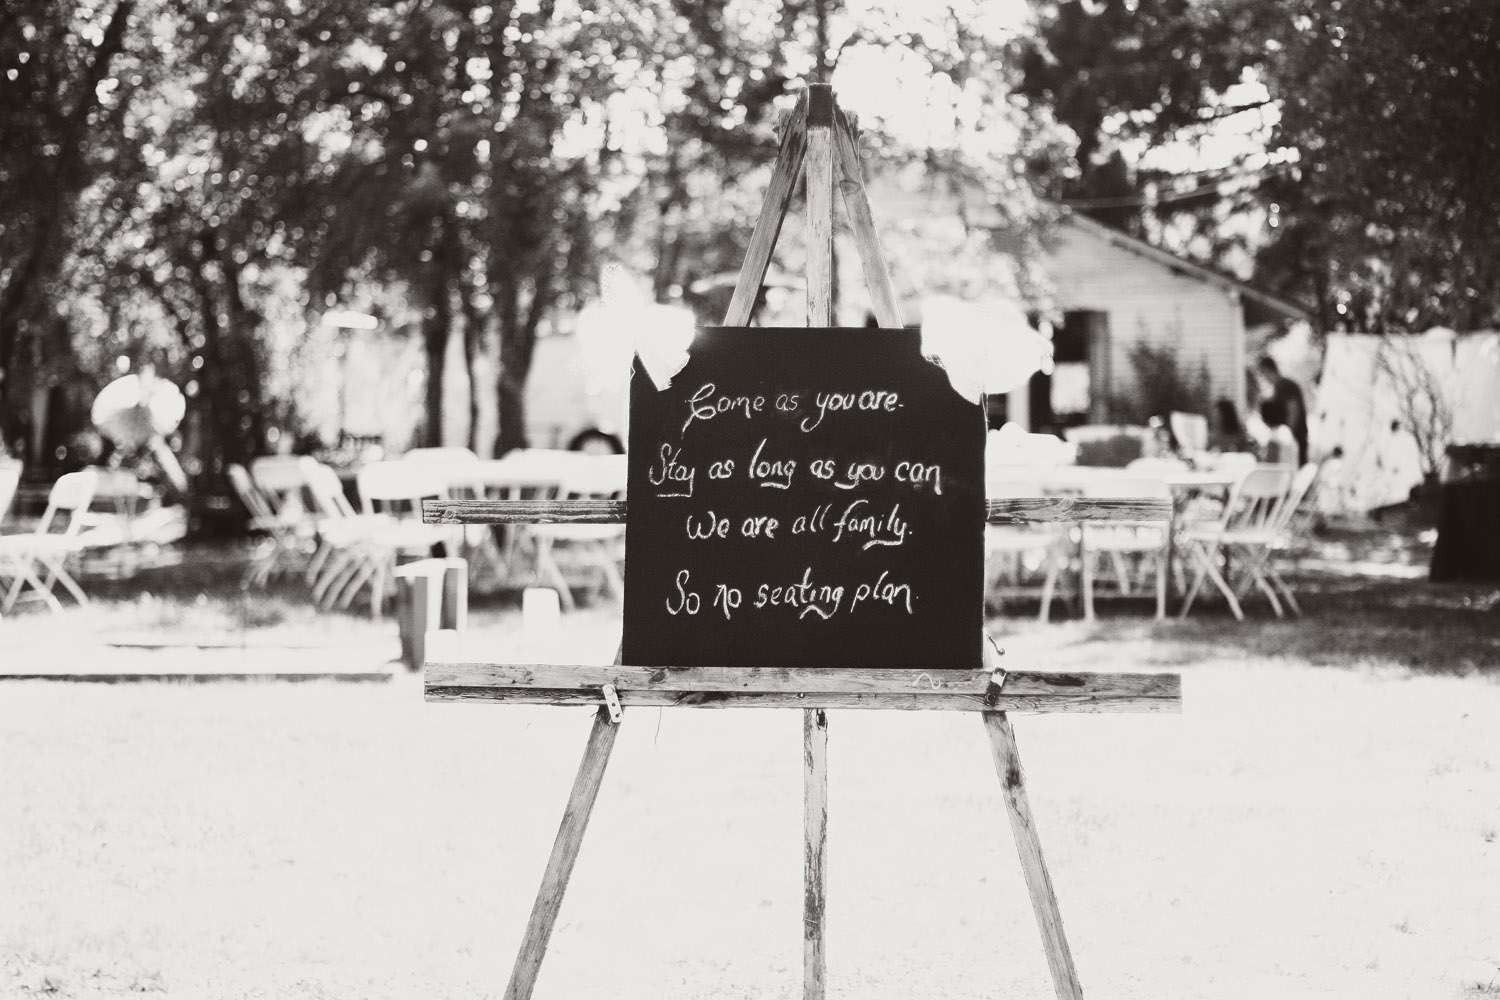 Come as you are.
Stay as long as you can
We are all family.
So no seating plan.